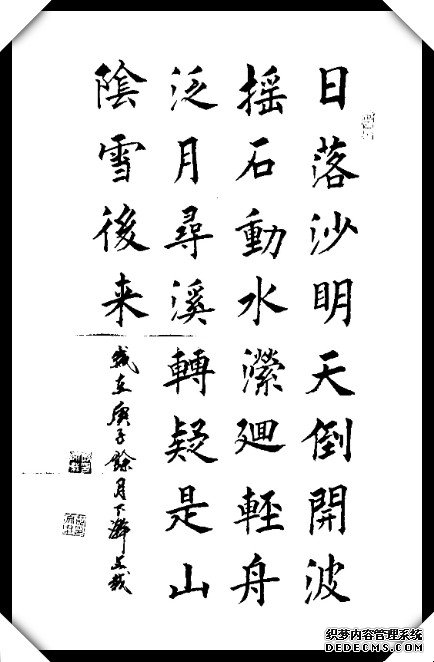 日落沙明天倒開波
摇石動水瀠廻輕舟
泛月尋溪轉疑是山
陰雪後来
歲在庚子餘月下澣
织梦内容管理系统
DEDECMS.COM